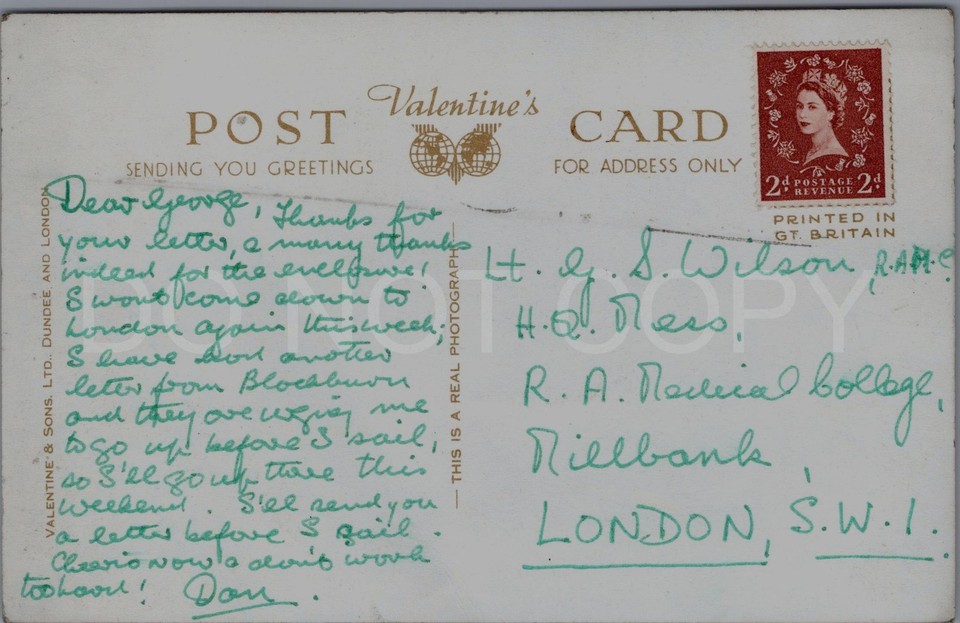 Valentine's
POST CARD
SENDING YOU GREETINGS
FOR ADDRESS ONLY
2d POSTAGE REVENUE 2d
PRINTED IN
GT. BRITAIN
VALENTINE & SONS, LTD., DUNDEE AND LONDON
THIS IS A REAL PHOTOGRAPH
Dear George, Thanks for
your letter, & many thanks
indeed for the enclosure!
I wont come down to
London again this week;
I have had another
letter from Blackburn
and they are urging me
to go up before I sail,
so I'll go up there this
weekend. I'll send you
a letter before I sail.
Cheerio now & don't work
too hard! Dan.
Lt. G. S. Wilson, R.A.M.C.
H.Q. Mess,
R. A. Medical College,
Millbank,
LONDON, S.W.1.
DO NOT COPY